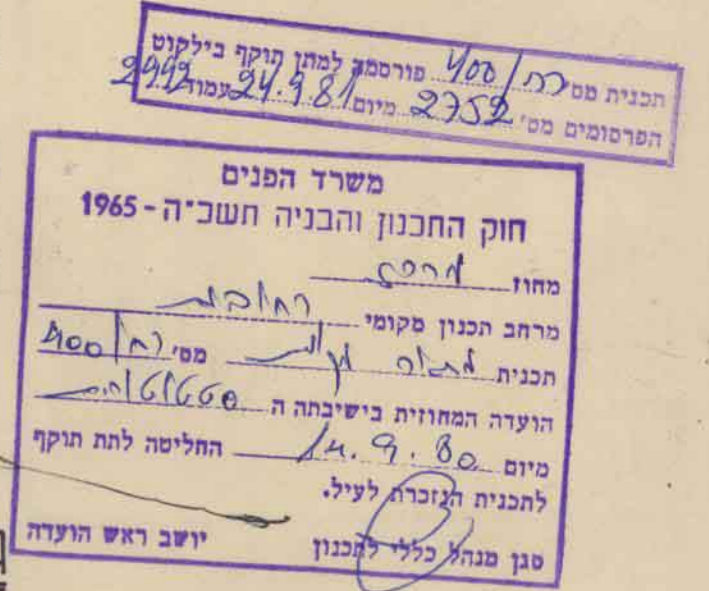 תכנית מס רח/400 פורסמה למתן תוקף בילקוט
הפרסומים מס' 2752 מיום 24.9.81 עמוד 2992
משרד הפנים
חוק התכנון והבניה תשכ"ה - 1965
מחוז מרכז
מרחב תכנון מקומי רחובות
תכנית מתאר מס' רח/400
הועדה המחוזית בישיבתה ה סטטוטורית
מיום 14.9.80 החליטה לתת תוקף
לתכנית הנזכרת לעיל.
סגן מנהל כללי לתכנון יושב ראש הועדה